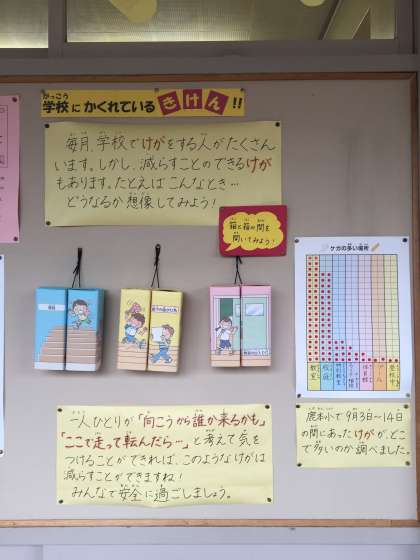 学校にかくれているきけん!!
毎月、学校でけがをする人がたくさん
います。しかし、減らすことのできるけが
もあります。たとえばこんなとき…
どうなるか想像してみよう!
箱と箱の間を
開いてみよう!
ケガの多い場所
教室
校庭
体育館
プール
登校中
鹿本小で9月3日〜14日
の間にあったけがが、どこ
で多いのか調べました。
一人ひとりが「向こうから誰か来るかも」
「ここで走って転んだら…」と考えて気を
つけることができれば、このようなけがは
減らすことができますね!
みんなで安全に過ごしましょう。